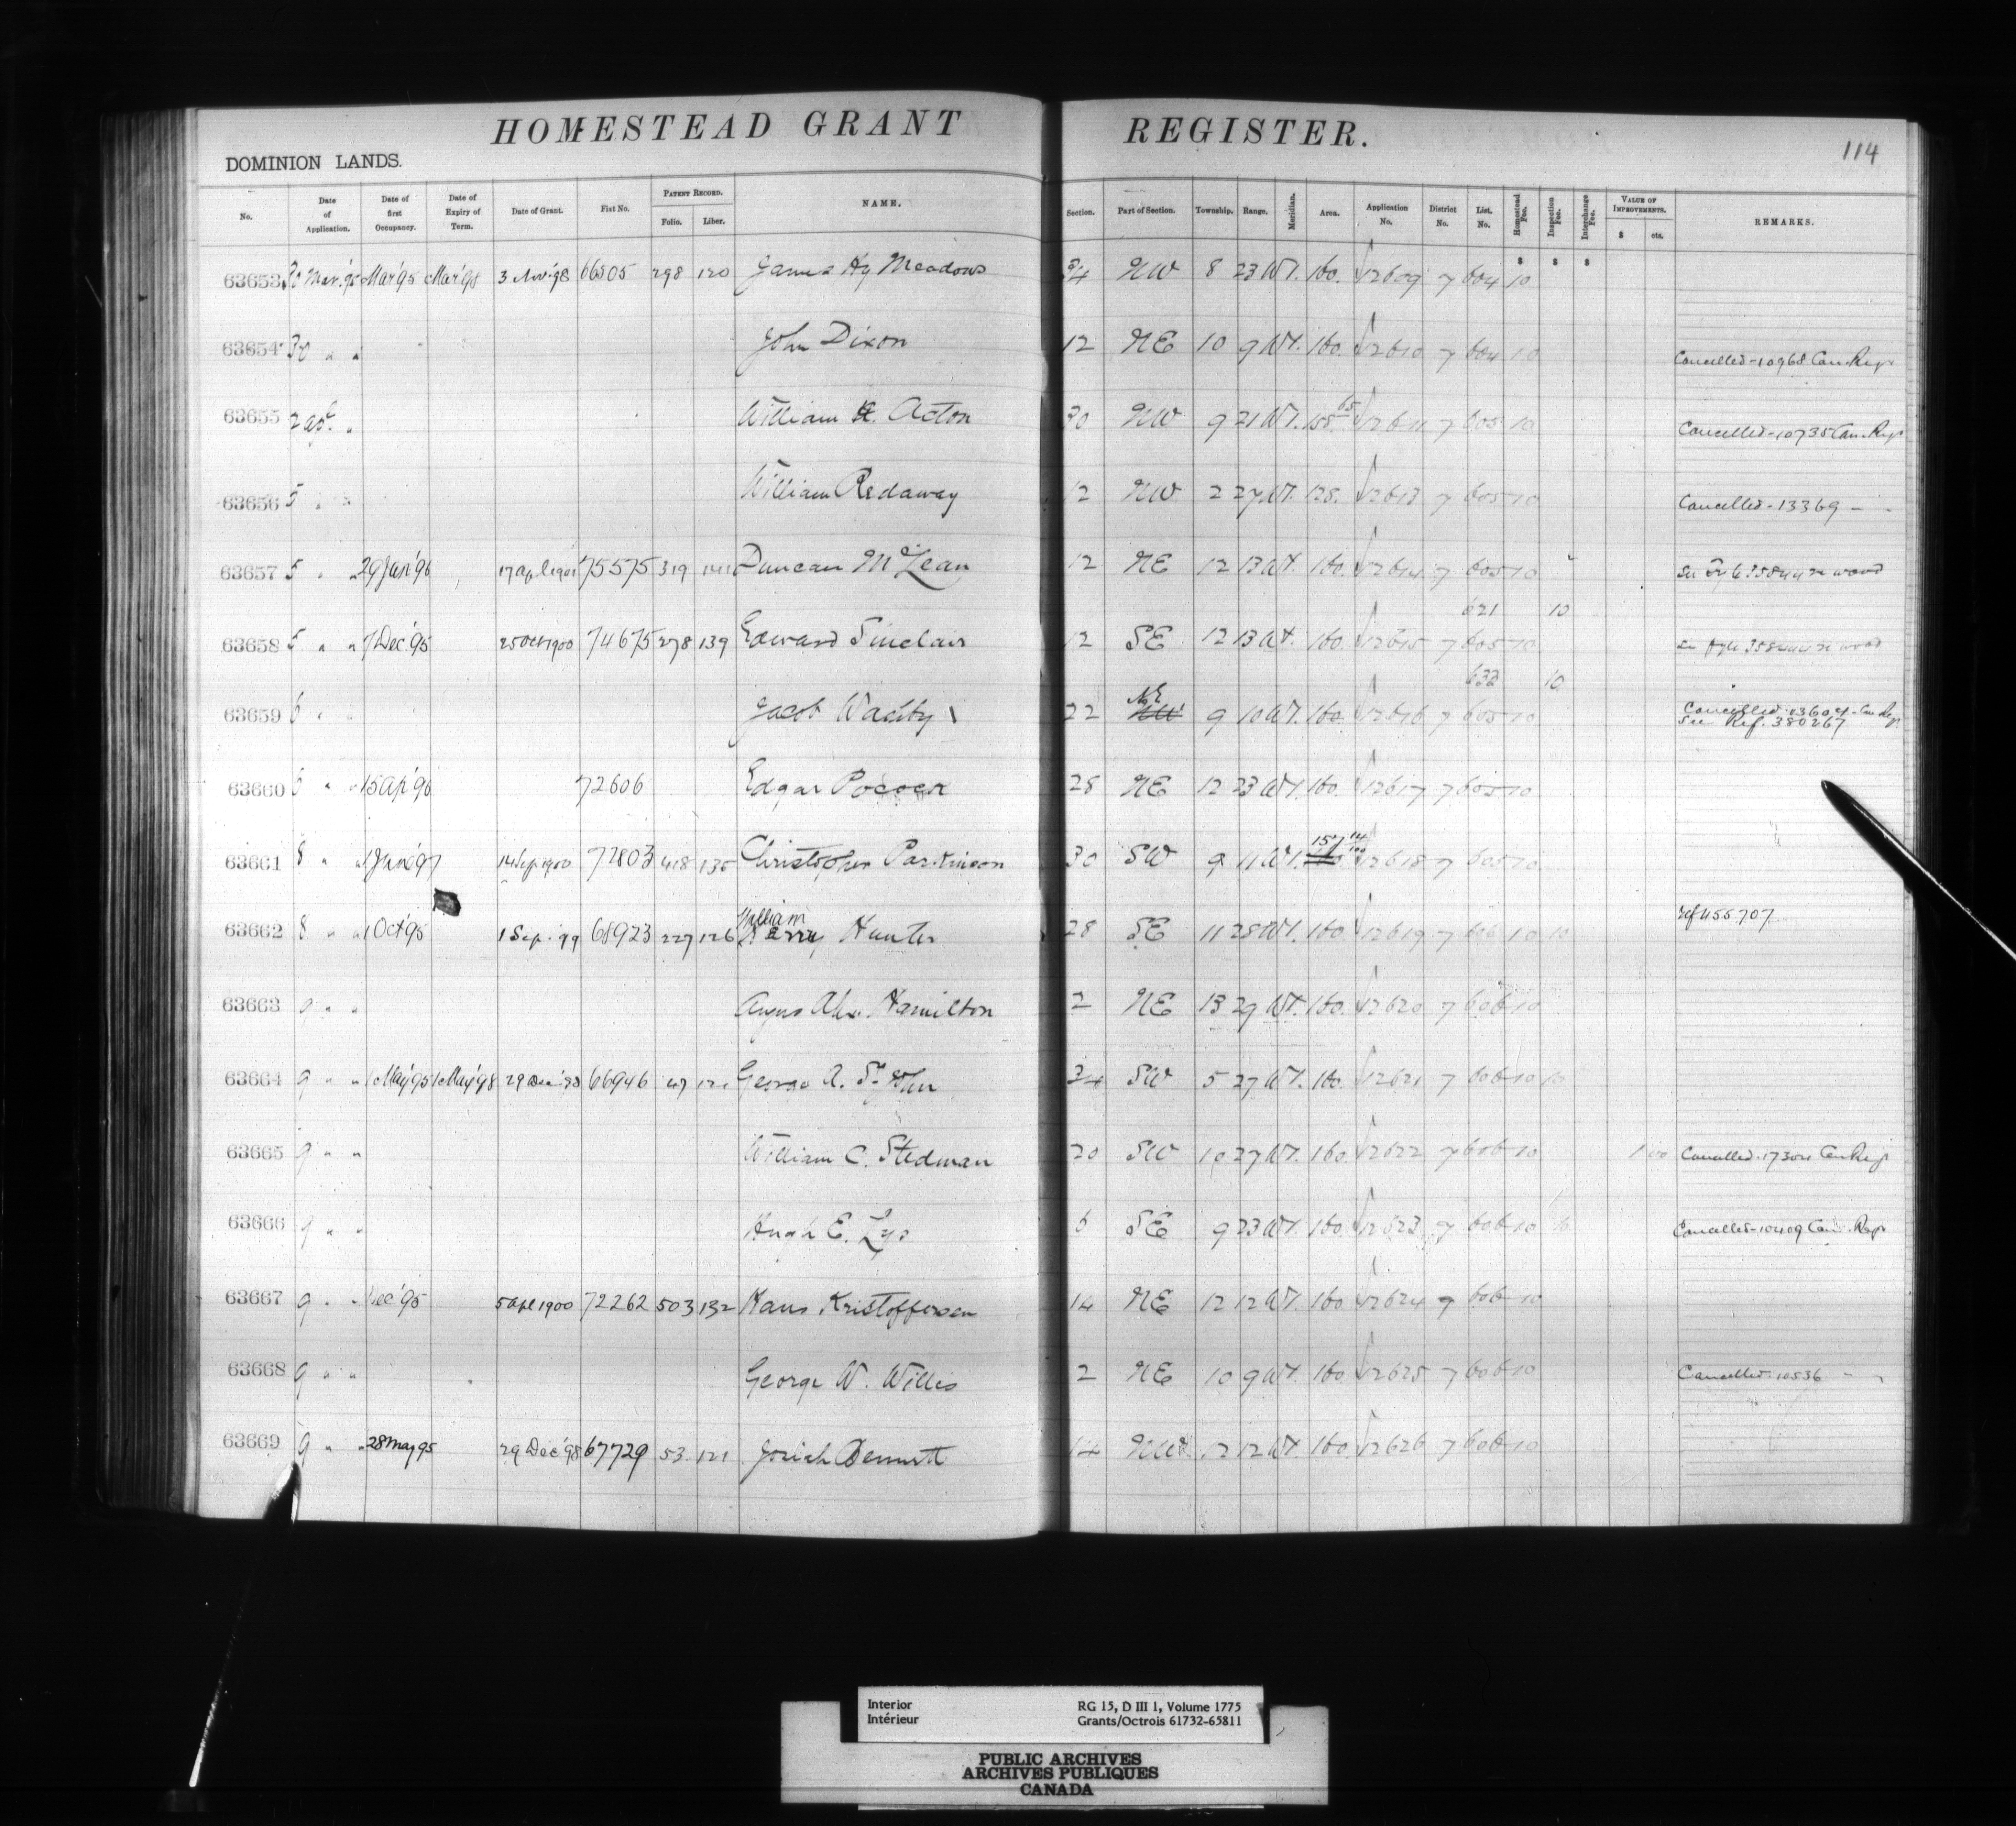 HOMESTEAD GRANT REGISTER.
114
DOMINION LANDS.
No. Date of Application. Date of first Occupancy. Date of Expiry of Term. Date of Grant. Fiat No. PATENT RECORD. Folio. Liber. NAME. Section. Part of Section. Township. Range. Meridian. Area. Application No. District No. List. No. Homestead Fee. Inspection Fee. Interchange Fee. VALUE OF IMPROVEMENTS. $ cts. REMARKS.
$ $ $
63653 30 Mar. '95 Mar '95 Mar '98 3 Nov '98 66505 298 120 James Hy Meadows 34 NW 8 23 W1. 160. 12609 7 604 10
63654 30 " " John Dixon 12 NE 10 9 W1. 160. 12610 7 604 10 Cancelled-10968 Can. Regr
63655 2 apl. " William H. Acton 30 NW 9 21 W1. 155. 65 12611 7 605 10 Cancelled-10735 Can. Regr
63656 5 " " William Redaway 12 NW 2 27 W1. 128. 12613 7 605 10 Cancelled-13369 - -
63657 5 " " 29 Jan '96 17 apl 1901 75575 319 141 Duncan McLean 12 NE 12 13 W1. 160. 12614 7 605 10
621 10
63658 5 " " 7 Dec '95 25 Oct 1900 74675 278 139 Edward Sinclair 12 SE 12 13 W1. 160. 12615 7 605 10
632 10
63659 6 " " Jacob 22 NW NE 9 10 W1. 160. 12616 7 605 10 Cancelled Can Reg.
See Ref. 380267
63660 6 " " 15 Ap '96 72606 Edgar Pocock 28 NE 12 23 W1. 160. 12617 7 605 10
63661 8 " " 1 June '97 14 Sep 1900 72803 418 135 Christopher Parkinson 30 SW 9 11 W1. 160 157 14/100 12618 7 605 10
63662 8 " " 1 Oct '95 1 Sep. '99 68923 227 126 William Harry Hunter 28 SE 11 28 W1. 160. 12619 7 606 10 10 ref 455707
63663 9 " " Angus Alex. Hamilton 2 NE 13 29 W1. 160. 12620 7 606 10
63664 9 " " 1 May '95 1 May '98 29 Dec '98 66946 47 121 George A. St. John 34 SW 5 27 W1. 160. 12621 7 606 10 10
63665 9 " " William C. Stedman 20 SW 10 27 W1. 160. 12622 7 606 10 1 00 Cancelled-17304 Can Regr
63666 9 " " Hugh E. Lys 6 SE 9 23 W1. 160. 12623 7 606 10 10 Cancelled-10409 Can. Regr
63667 9 " " Dec '95 5 Apl 1900 72262 503 132 Hans Kristoffersen 14 NE 12 12 W1. 160. 12624 7 606 10
63668 9 " " George W. Willis 2 NE 10 9 W1. 160. 12625 7 606 10 Cancelled-10536 - -
63669 9 " " 28 May 95 29 Dec '98 67729 53. 121 Josiah Bennett 14 NW 12 12 W1. 160. 12626 7 606 10
Interior RG 15, D III 1, Volume 1775
Intérieur Grants/Octrois 61732-65811
PUBLIC ARCHIVES
ARCHIVES PUBLIQUES
CANADA